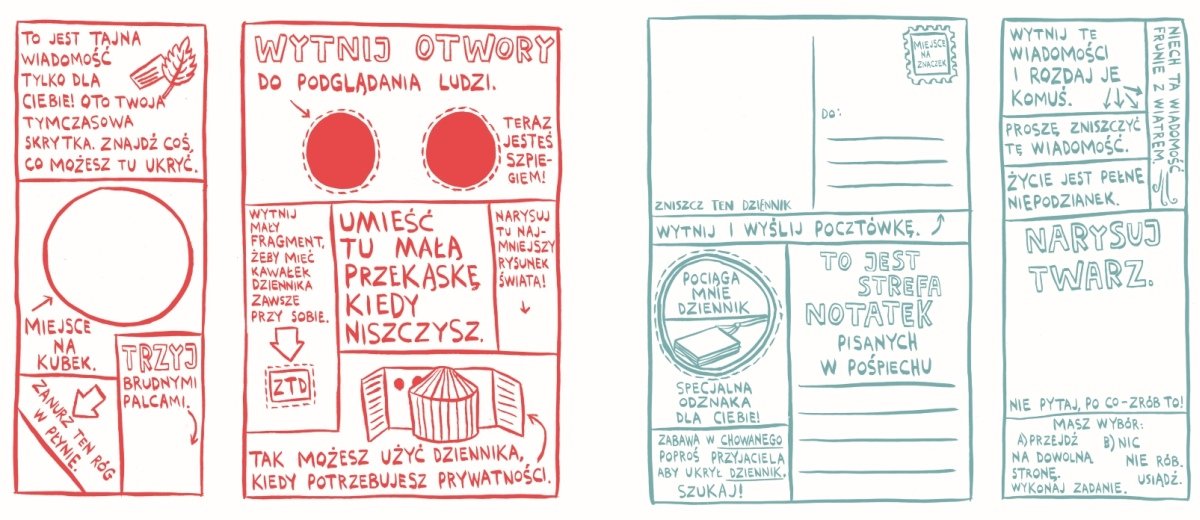 TO JEST TAJNA
WIADOMOŚĆ
TYLKO DLA
CIEBIE! OTO TWOJA
TYMCZASOWA
SKRYTKA. ZNAJDŹ COŚ,
CO MOŻESZ TU UKRYĆ.
MIEJSCE
NA
KUBEK.
ZANURZ TEN RÓG
W PŁYNIE.
TRZYJ
BRUDNYMI
PALCAMI.
WYTNIJ OTWORY
DO PODGLĄDANIA LUDZI.
TERAZ
JESTEŚ
SZPIE-
GIEM!
WYTNIJ
MAŁY
FRAGMENT,
ŻEBY MIEĆ
KAWAŁEK
DZIENNIKA
ZAWSZE
PRZY SOBIE.
ZTD
UMIEŚĆ
TU MAŁĄ
PRZEKĄSKĘ
KIEDY
NISZCZYSZ.
NARYSUJ
TU NAJ-
MNIEJSZY
RYSUNEK
ŚWIATA!
TAK MOŻESZ UŻYĆ DZIENNIKA,
KIEDY POTRZEBUJESZ PRYWATNOŚCI.
MIEJSCE
NA
ZNACZEK
DO:
ZNISZCZ TEN DZIENNIK
WYTNIJ I WYŚLIJ POCZTÓWKĘ.
POCIĄGA
MNIE
DZIENNIK
SPECJALNA
ODZNAKA
DLA CIEBIE!
ZABAWA W CHOWANEGO
POPROŚ PRZYJACIELA
ABY UKRYŁ DZIENNIK.
SZUKAJ!
TO JEST
STREFA
NOTATEK
PISANYCH
W POŚPIECHU
WYTNIJ TE
WIADOMOŚCI
I ROZDAJ JE
KOMUŚ.
NIECH TA WIADOMOŚĆ
FRUNIE Z WIATREM.
PROSZĘ ZNISZCZYĆ
TĘ WIADOMOŚĆ.
ŻYCIE JEST PEŁNE
NIEPODZIANEK.
NARYSUJ
TWARZ.
NIE PYTAJ, PO CO-ZRÓB TO!
MASZ WYBÓR:
A) PRZEJDŹ
NA DOWOLNĄ
STRONĘ.
WYKONAJ ZADANIE.
B) NIC
NIE RÓB.
USIĄDŹ.